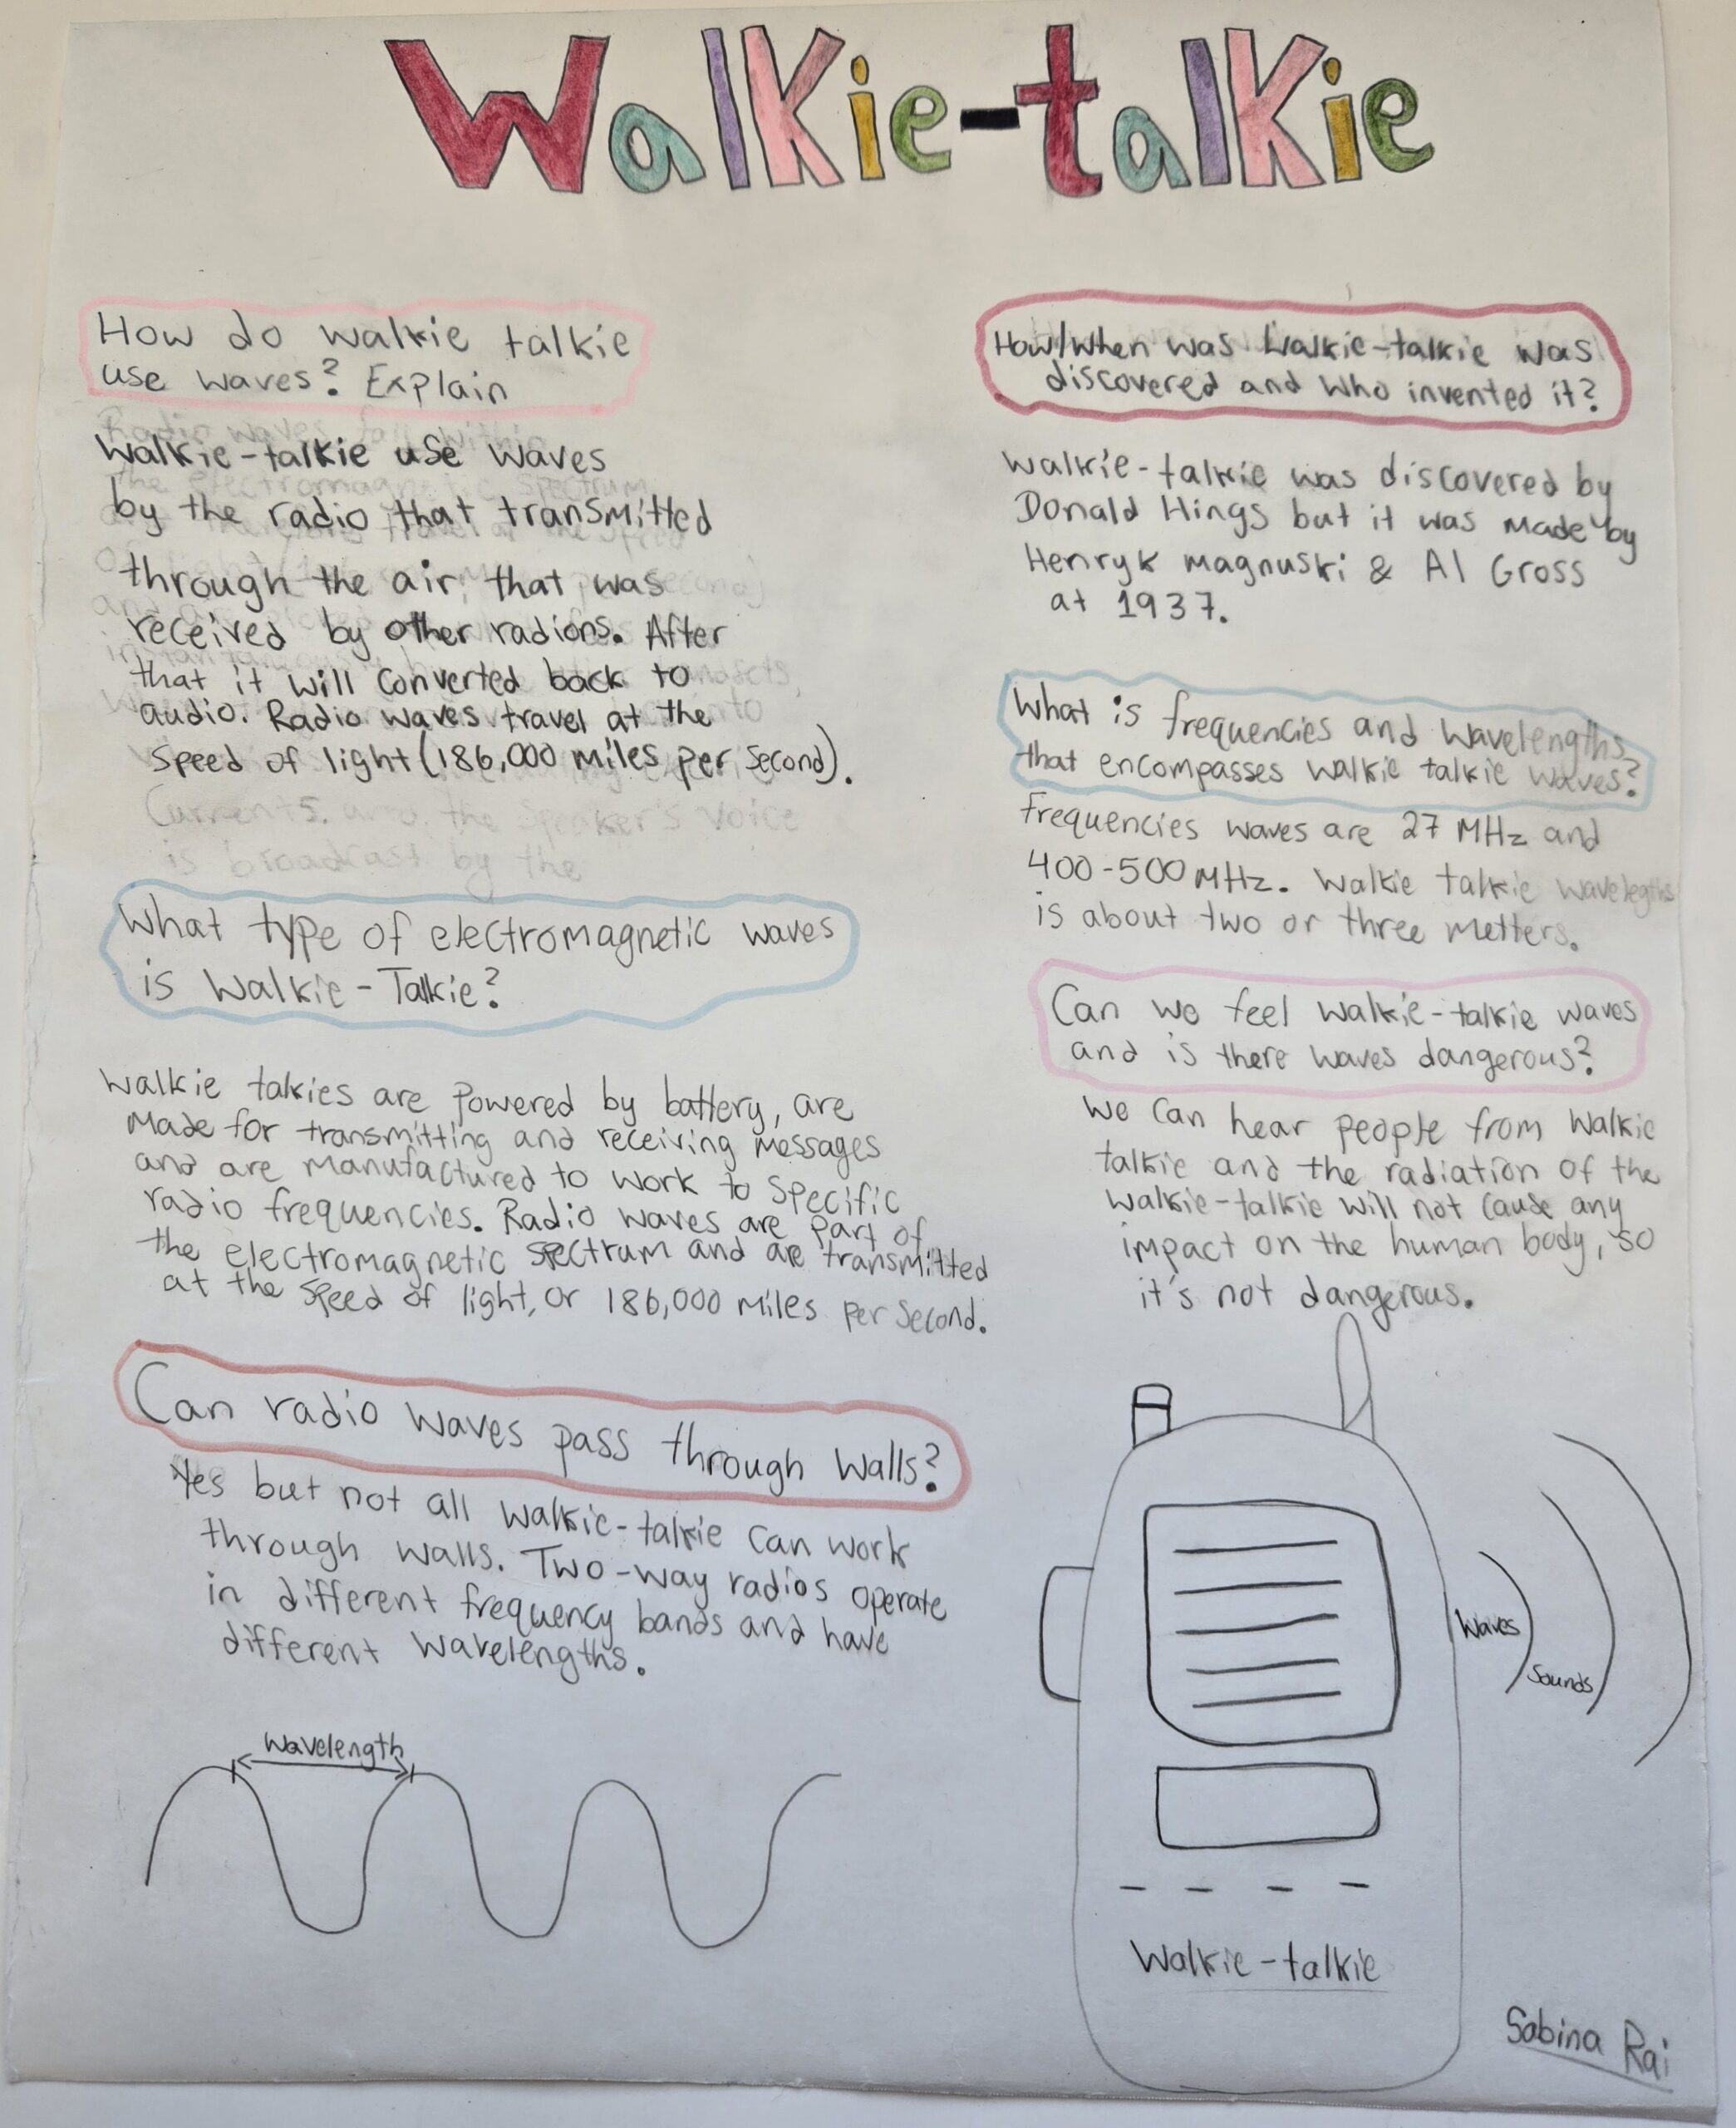 Walkie-talkie
How do walkie talkie
use waves? Explain
Walkie-talkie use waves
by the radio that transmitted
through the air, that was
received by other radions. After
that it will converted back to
audio. Radio waves travel at the
speed of light (186,000 miles per second).
Currents. and the speaker's voice
is broadcast by the
What type of electromagnetic waves
is Walkie-Talkie?
Walkie talkies are powered by battery, are
made for transmitting and receiving messages
and are manufactured to work to specific
radio frequencies. Radio waves are part of
the electromagnetic spectrum and are transmitted
at the speed of light, or 186,000 miles per second.
Can radio waves pass through walls?
Yes but not all walkie-talkie can work
through walls. Two-way radios operate
in different frequency bands and have
different wavelengths.
wavelength
How/when was Walkie-talkie was
discovered and who invented it?
Walkie-talkie was discovered by
Donald Hings but it was made by
Henryk magnuski & Al Gross
at 1937.
What is frequencies and wavelengths
that encompasses walkie talkie waves?
Frequencies waves are 27 MHz and
400-500 MHz. Walkie talkie wavelegths
is about two or three metters.
Can we feel walkie-talkie waves
and is there waves dangerous?
We can hear people from walkie
talkie and the radiation of the
walkie-talkie will not cause any
impact on the human body, so
it's not dangerous.
Waves
Sounds
Walkie-talkie
Sabina Rai